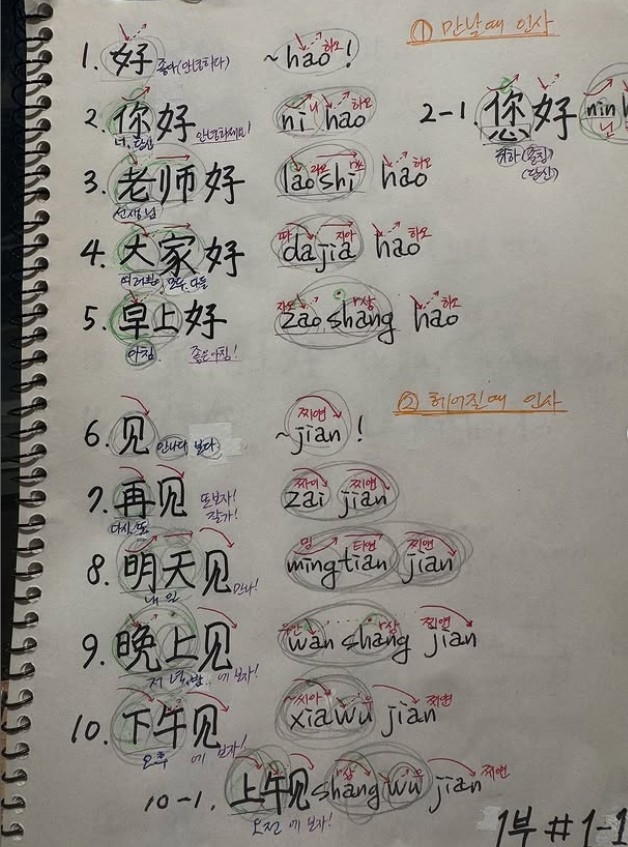 ① 만날때 인사
1. 好 좋아(안녕하다) ~hao! 하오
2. 你好 너, 당신 안녕하세요! ni hao 니 하오
2-1. 您好 (존칭) (당신) nin 닌
3. 老师好 선생님 lao shi hao 라오 하오
4. 大家好 여러분, 모두, 다들 da jia hao 따 지아 하오
5. 早上好 아침 좋은아침! zao shang hao 자오 샹 하오
② 헤어질때 인사
6. 见 만나다 보다 ~jian! 찌앤
7. 再见 다시, 또 또보자! 잘가! zai jian 짜이 찌앤
8. 明天见 내일 만나! ming tian jian 밍 티앤 찌앤
9. 晚上见 저녁, 밤 에 보자! wan shang jian 샹 찌앤
10. 下午见 오후 에 보자! xia wu jian 씨아 우 찌앤
10-1. 上午见 오전 에 보자! shang wu jian 샹 우 찌앤
1부 #1-1